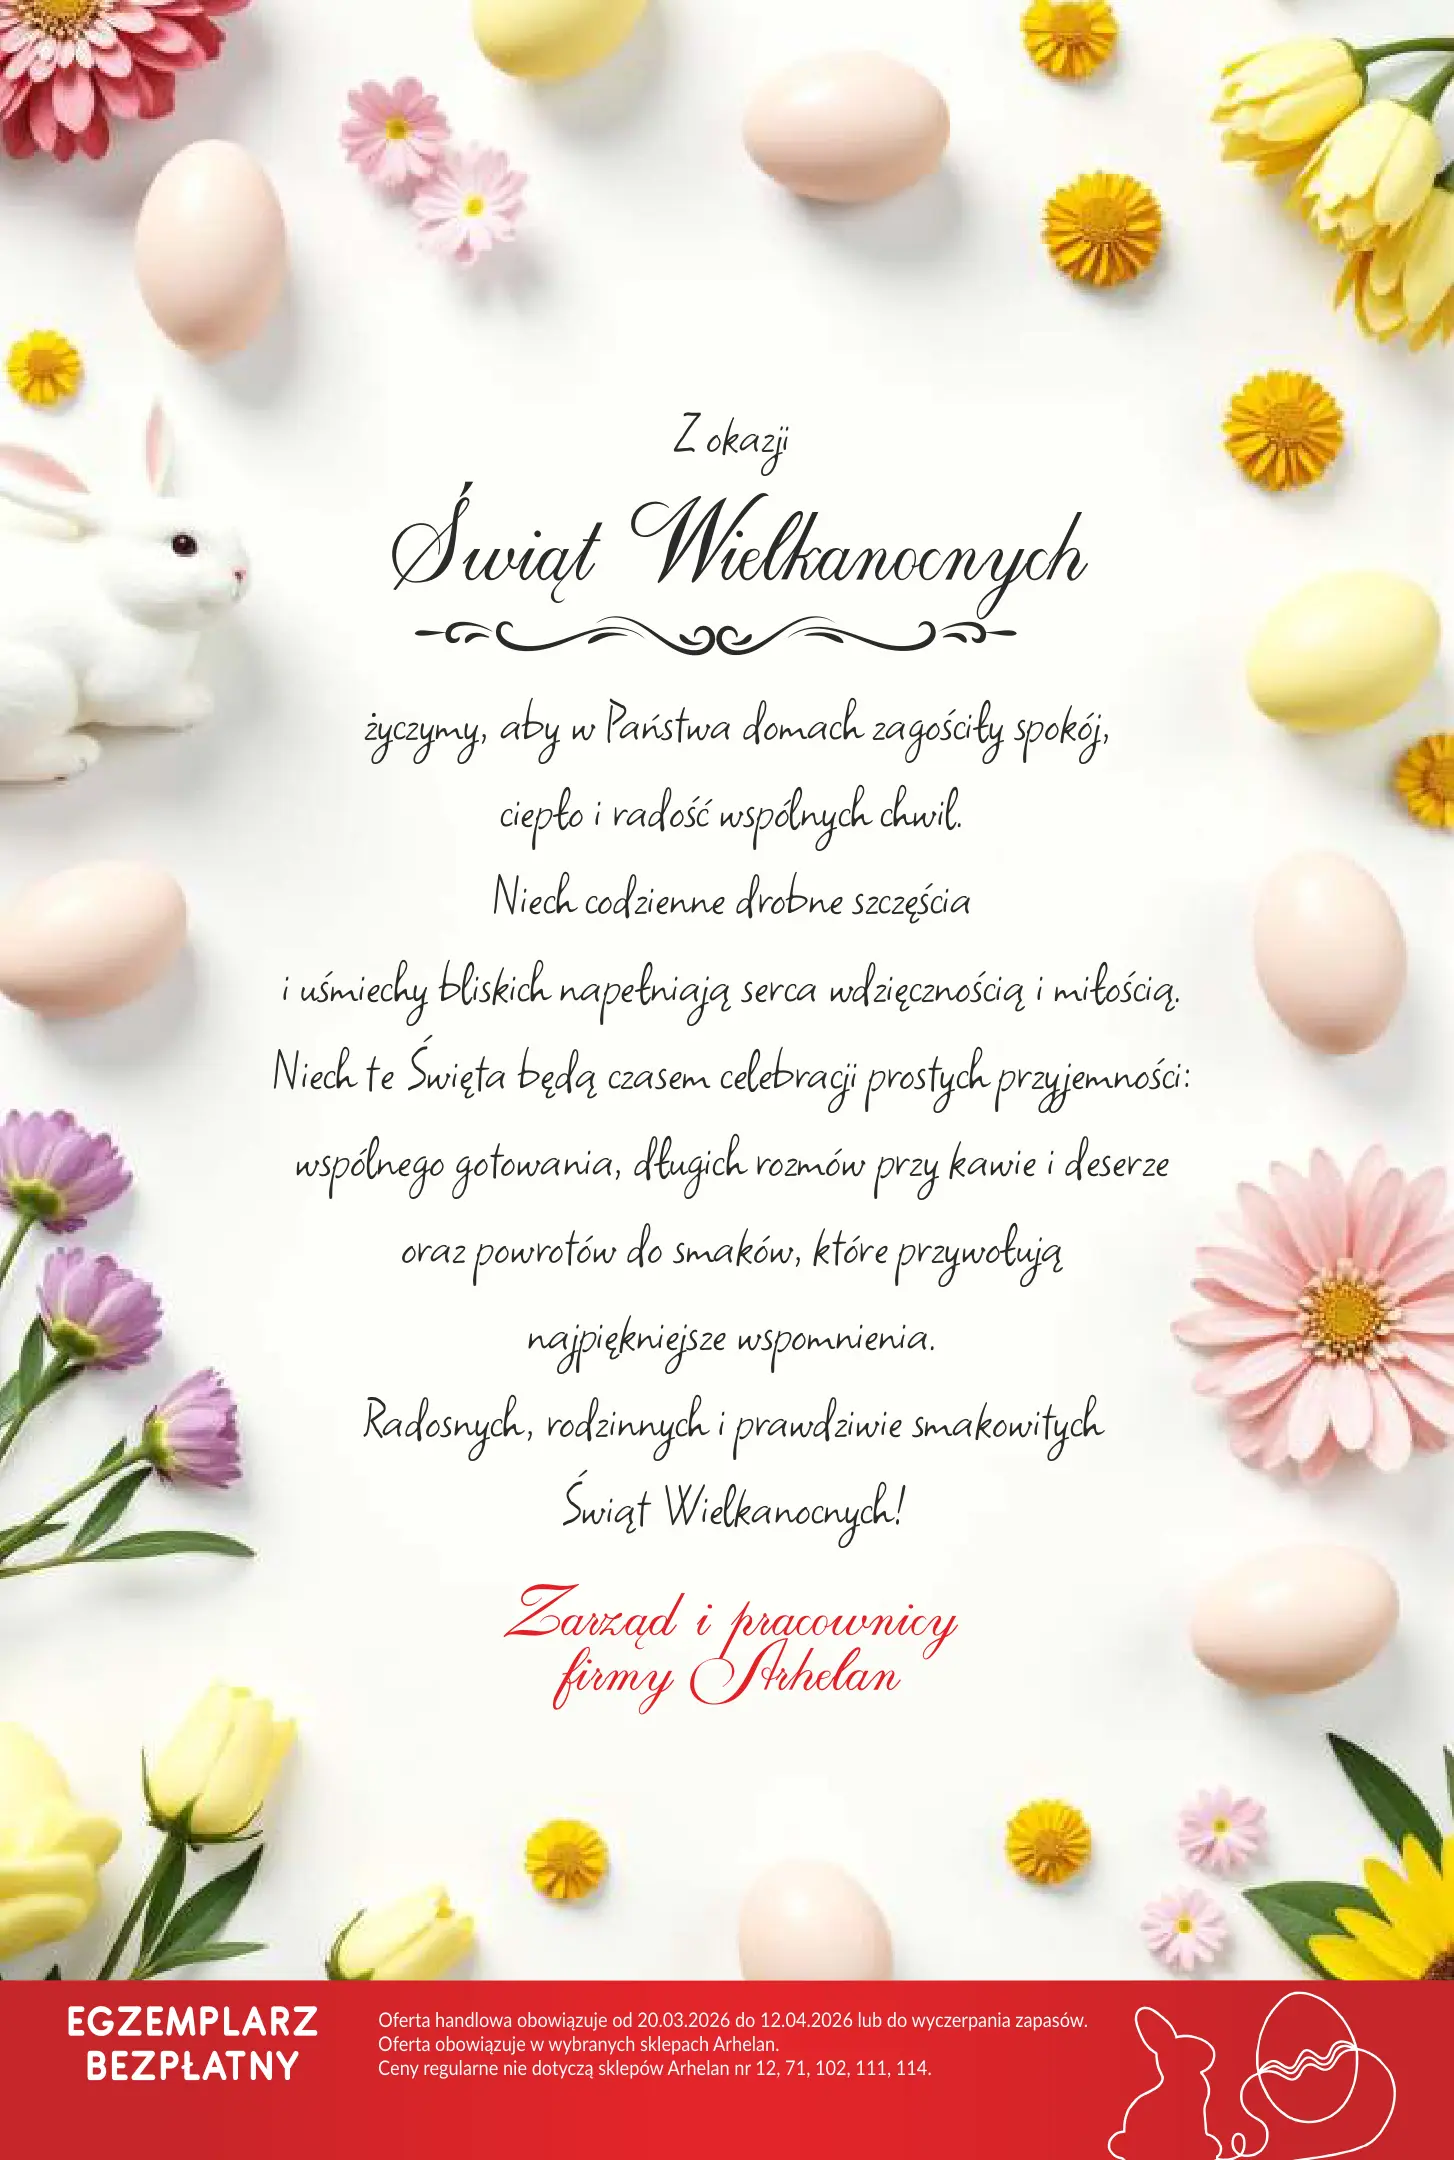 Z okazji
Świąt Wielkanocnych
życzymy, aby w Państwa domach zagościły spokój,
ciepło i radość wspólnych chwil.
Niech codzienne drobne szczęścia
i uśmiechy bliskich napełniają serca wdzięcznością i miłością.
Niech te Święta będą czasem celebracji prostych przyjemności:
wspólnego gotowania, długich rozmów przy kawie i deserze
oraz powrotów do smaków, które przywołują
najpiękniejsze wspomnienia.
Radosnych, rodzinnych i prawdziwie smakowitych
Świąt Wielkanocnych!
Zarząd i pracownicy
firmy Arhelan
EGZEMPLARZ
BEZPŁATNY
Oferta handlowa obowiązuje od 20.03.2026 do 12.04.2026 lub do wyczerpania zapasów.
Oferta obowiązuje w wybranych sklepach Arhelan.
Ceny regularne nie dotyczą sklepów Arhelan nr 12, 71, 102, 111, 114.